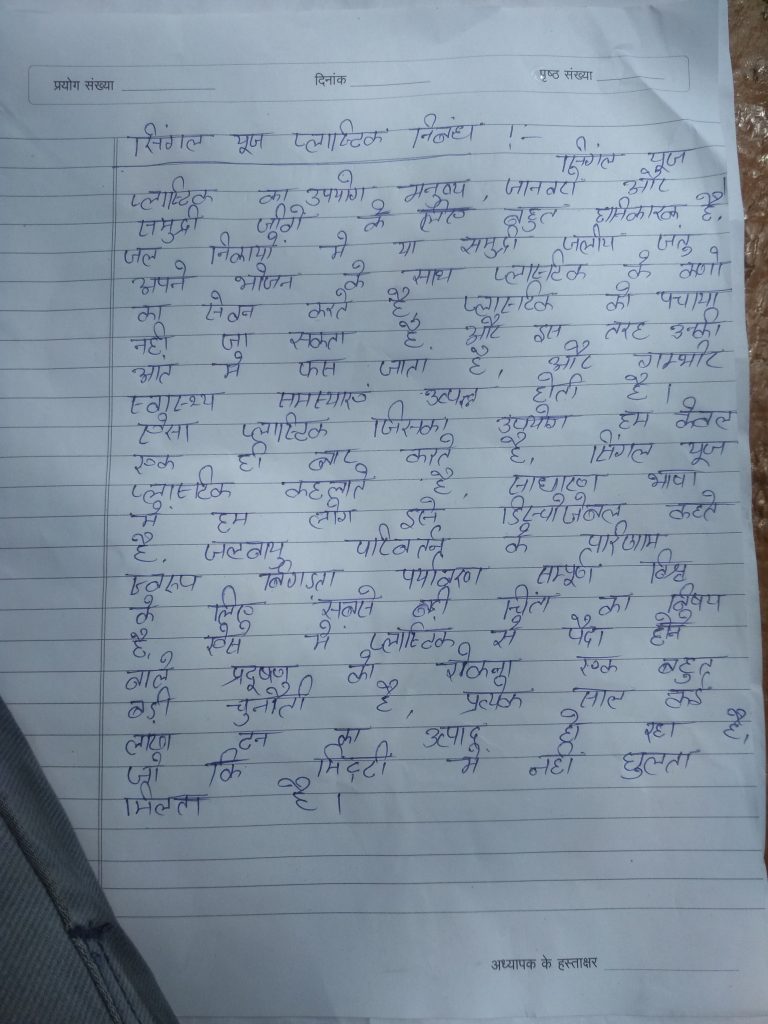 प्रयोग संख्या दिनांक पृष्ठ संख्या
सिंगल यूज प्लास्टिक निबंध !-
सिंगल यूज
प्लास्टिक का उपयोग मनुष्य, जानवरो और
समुद्री जीवो के लिए बहुत हानिकारक है,
जल निकायो मे या समुद्री जलीय जंतु
अपने भोजन के साथ प्लास्टिक के कणो
का सेवन करते है, प्लास्टिक को पचाया
नही जा सकता है, और इस तरह उनकी
आंत मे फस जाता है, और गम्भीर
स्वास्थ्य समस्याएं उत्पन्न होती है ।
ऐसा प्लास्टिक जिसका उपयोग हम केवल
एक ही बार करते है, सिंगल यूज
प्लास्टिक कहलाते है, साधारण भाषा
मे हम लोग इसे डिस्पोजेबल कहते
है, जलवायु परिवर्तन के परिणाम
स्वरुप बिगड़ता पर्यावरण सम्पूर्ण विश्व
के लिए सबसे बड़ी चिंता का विषय
है, ऐसे मे प्लास्टिक से पैदा होने
वाले प्रदूषण को रोकना एक बहुत
बड़ी चुनौती है, प्रत्येक साल कई
लाख टन का उत्पाद हो रहा है,
जो कि मिट्टी में नहीं घुलता
मिलता है ।
अध्यापक के हस्ताक्षर